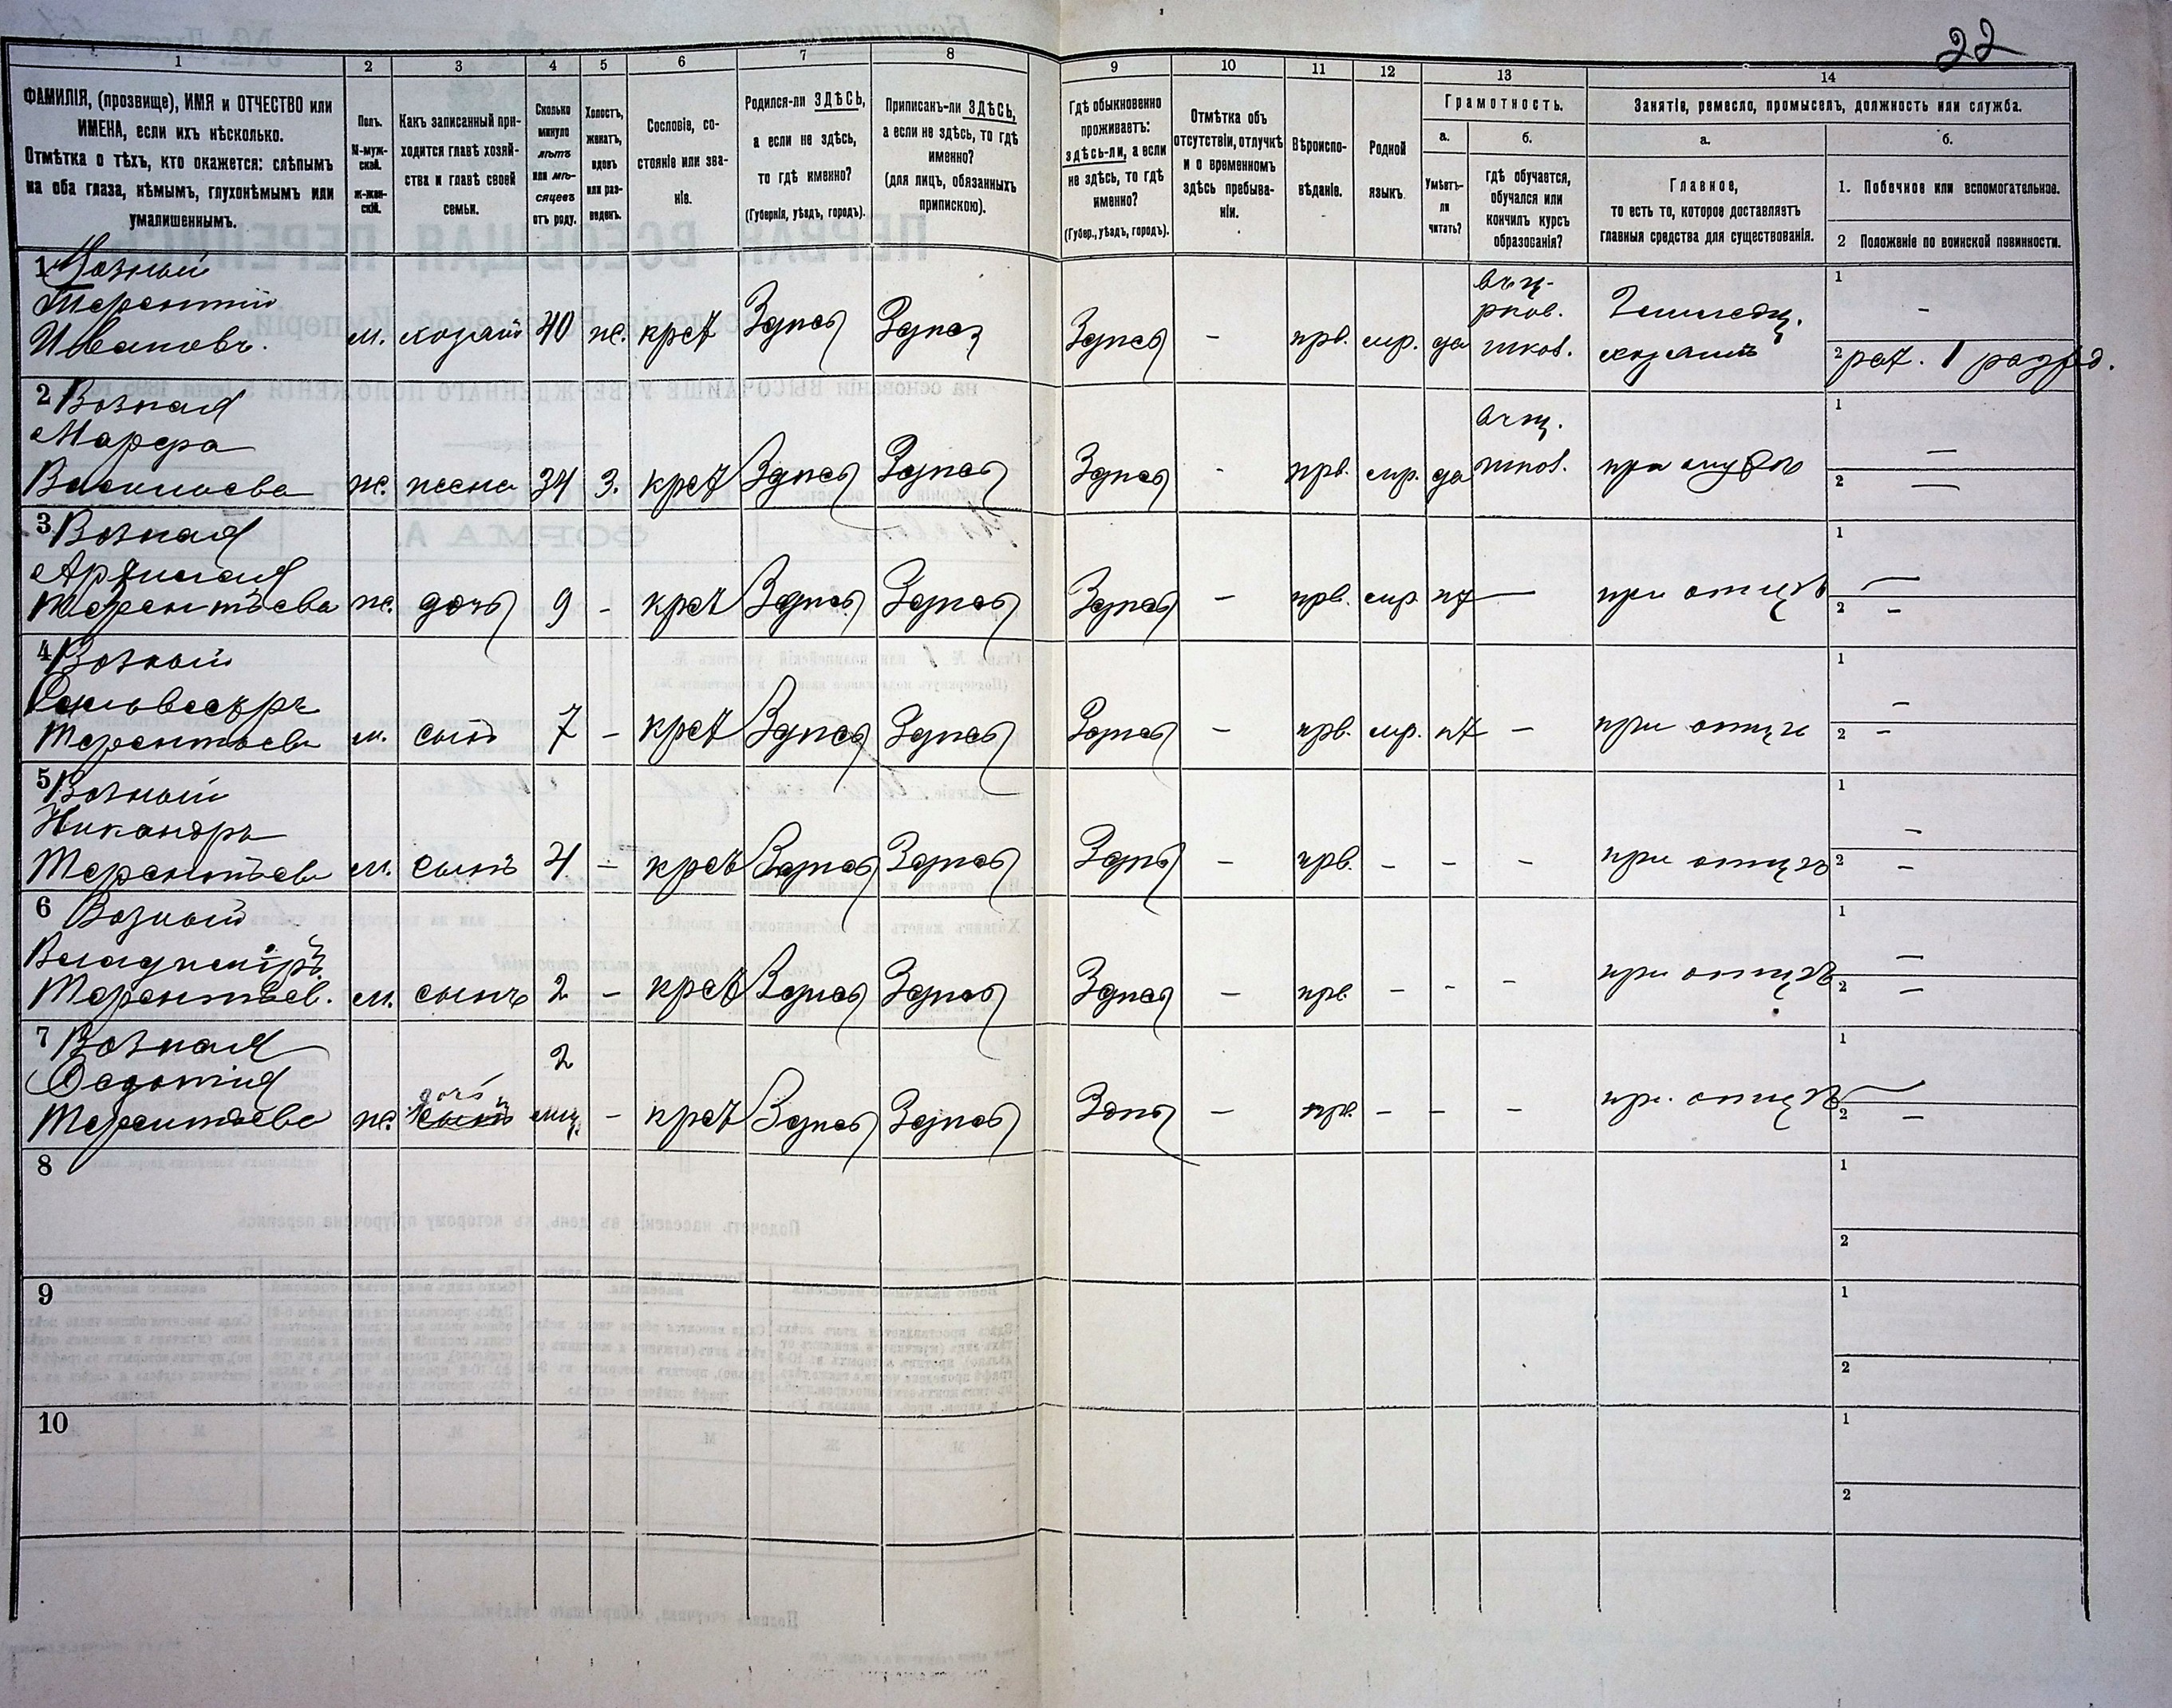 22
1 2 3 4 5 6 7 8 9 10 11 12 13 14
ФАМИЛІЯ, (прозвище), ИМЯ и ОТЧЕСТВО или
ИМЕНА, если ихъ нѣсколько.
Отмѣтка о тѣхъ, кто окажется: слѣпымъ
на оба глаза, нѣмымъ, глухонѣмымъ или
умалишеннымъ.
Полъ.
М-муж-
ской.
ж-жен-
скій.
Какъ записанный при-
ходится главѣ хозяй-
ства и главѣ своей
семьи.
Сколько
минуло
лѣтъ
или мѣ-
сяцевъ
отъ роду.
Холостъ,
женатъ,
вдовъ
или раз-
веденъ.
Сословіе, со-
стояніе или зва-
ніе.
Родился-ли ЗДѢСЬ,
а если не здѣсь,
то гдѣ именно?
(Губернія, уѣздъ, городъ).
Приписанъ-ли ЗДѢСЬ,
а если не здѣсь, то гдѣ
именно?
(для лицъ, обязанныхъ
припискою).
Гдѣ обыкновенно
проживаетъ:
здѣсь-ли, а если
не здѣсь, то гдѣ
именно?
(Губер., уѣздъ, городъ).
Отмѣтка объ
отсутствіи, отлучкѣ
и о временномъ
здѣсь пребыва-
ніи.
Вѣроиспо-
вѣданіе.
Родной
языкъ.
Грамотность.
а.
Умѣетъ-
ли
читать?
б.
гдѣ обучается,
обучался или
кончилъ курсъ
образованія?
Занятіе, ремесло, промыселъ, должность или служба.
а.
Главное,
то есть то, которое доставляетъ
главныя средства для существованія.
б.
1. Побочное или вспомогательное.
2 Положеніе по воинской повинности.
1 Возный
Терентій
Ивановъ. м. хозяин 40 ж. крест Здѣсь Здѣсь Здѣсь - прв. мр. да
школ.
хозяинъ
1 -
2 рат. 1 разряд.
2 Возная
Марфа
Васильева ж. жена 34 З. крест Здѣсь Здѣсь Здѣсь - прв. мр. да
школ.
1 —
2 —
3 Возная
Терентьева ж. дочь 9 - крест Здѣсь Здѣсь Здѣсь - прв. мр. нт — при отцѣ
1 —
2 -
4 Возный
Сильвестръ
Терентьевъ м. сынъ 7 - крест Здѣсь Здѣсь Здѣсь - прв. мр. нт - при отцѣ
1 -
2 -
5 Возный
Никандръ
Терентьевъ м. сынъ 4 - крест Здѣсь Здѣсь Здѣсь - прв. - - - при отцѣ
1 -
2 -
6 Возный
Владиміръ
Терентьев. м. сынъ 2 - крест Здѣсь Здѣсь Здѣсь - прв. - - - при отцѣ
1 -
2 -
7 Возная
Федотія
дочь
2
Терентьева ж. сынъ мц. - крест Здѣсь Здѣсь Здѣсь - прв. - - - при отцѣ
1 —
2 -
8
1
2
9
1
2
10
1
2